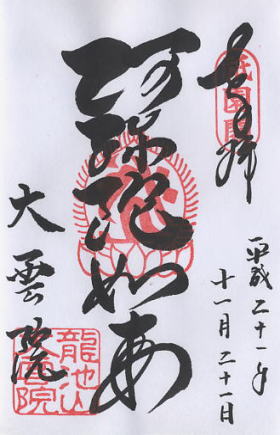 奉拝
平成二十一年
十一月二十一日
阿弥陀如来
大雲院
龍池山
雲院